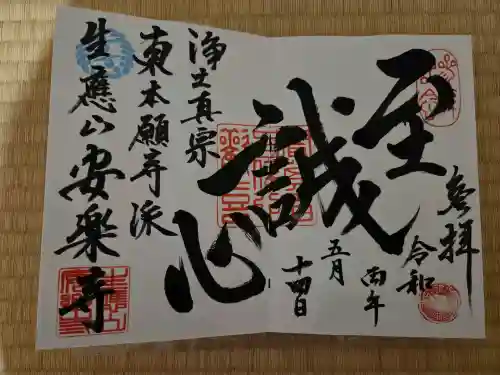 参拝
令和
丙午
五月
十四日
至誠心
浄土真宗
東本願寺派
生應山安楽寺